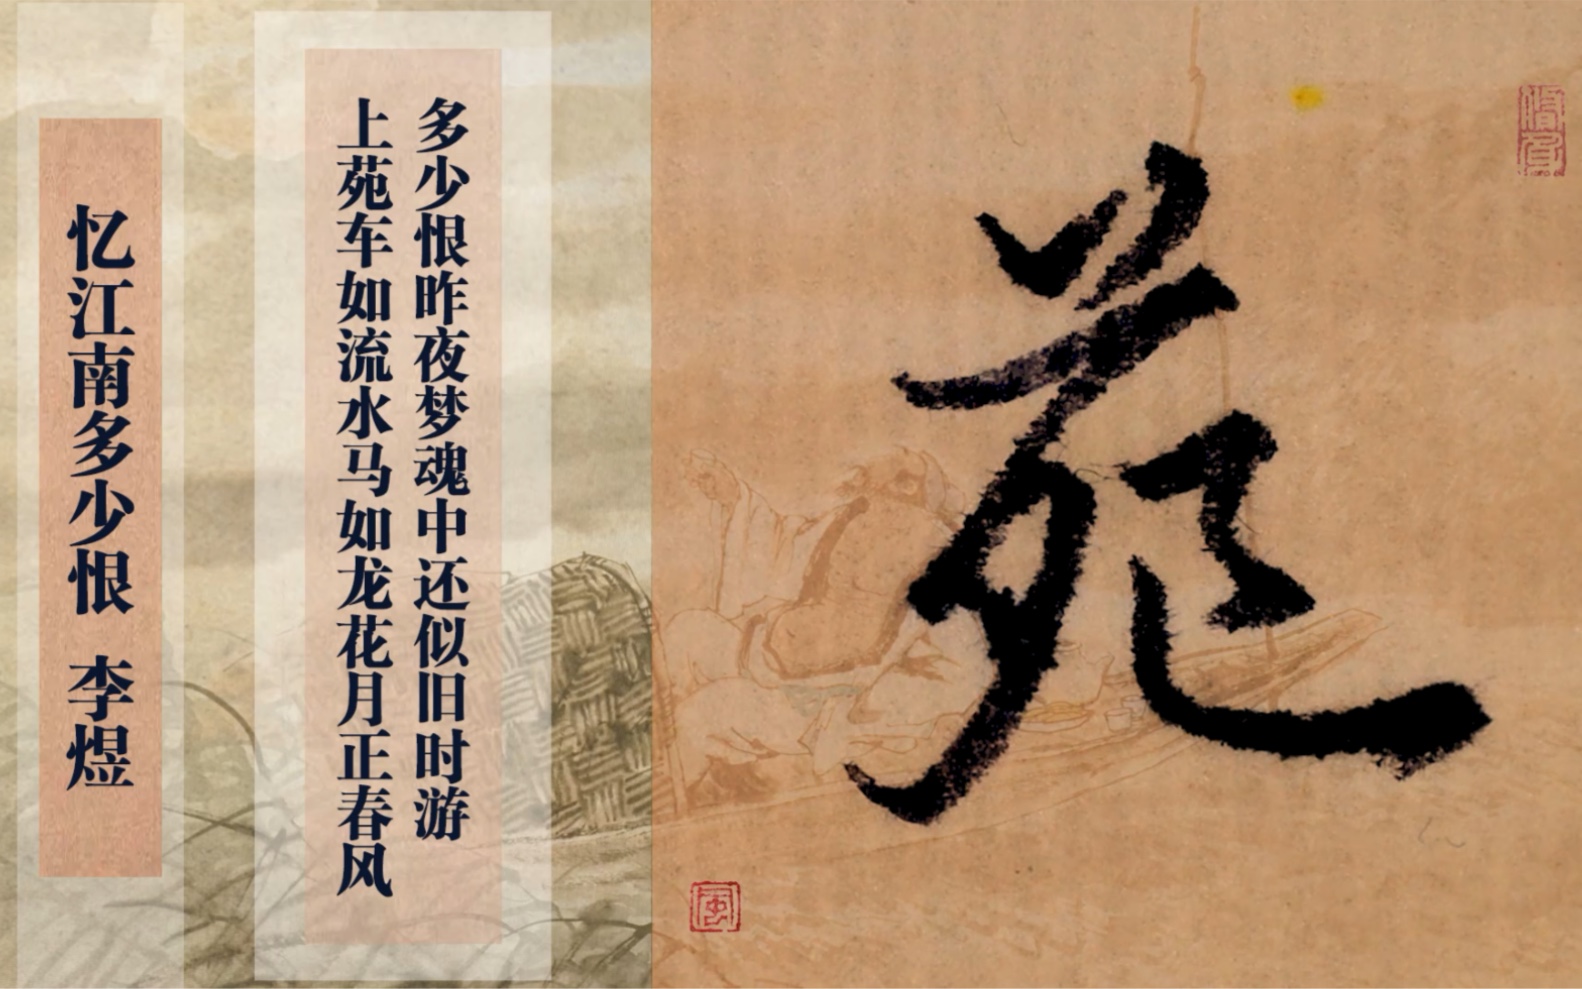 苑
多少恨昨夜梦魂中还似旧时游
上苑车如流水马如龙花月正春风
忆江南多少恨 李煜